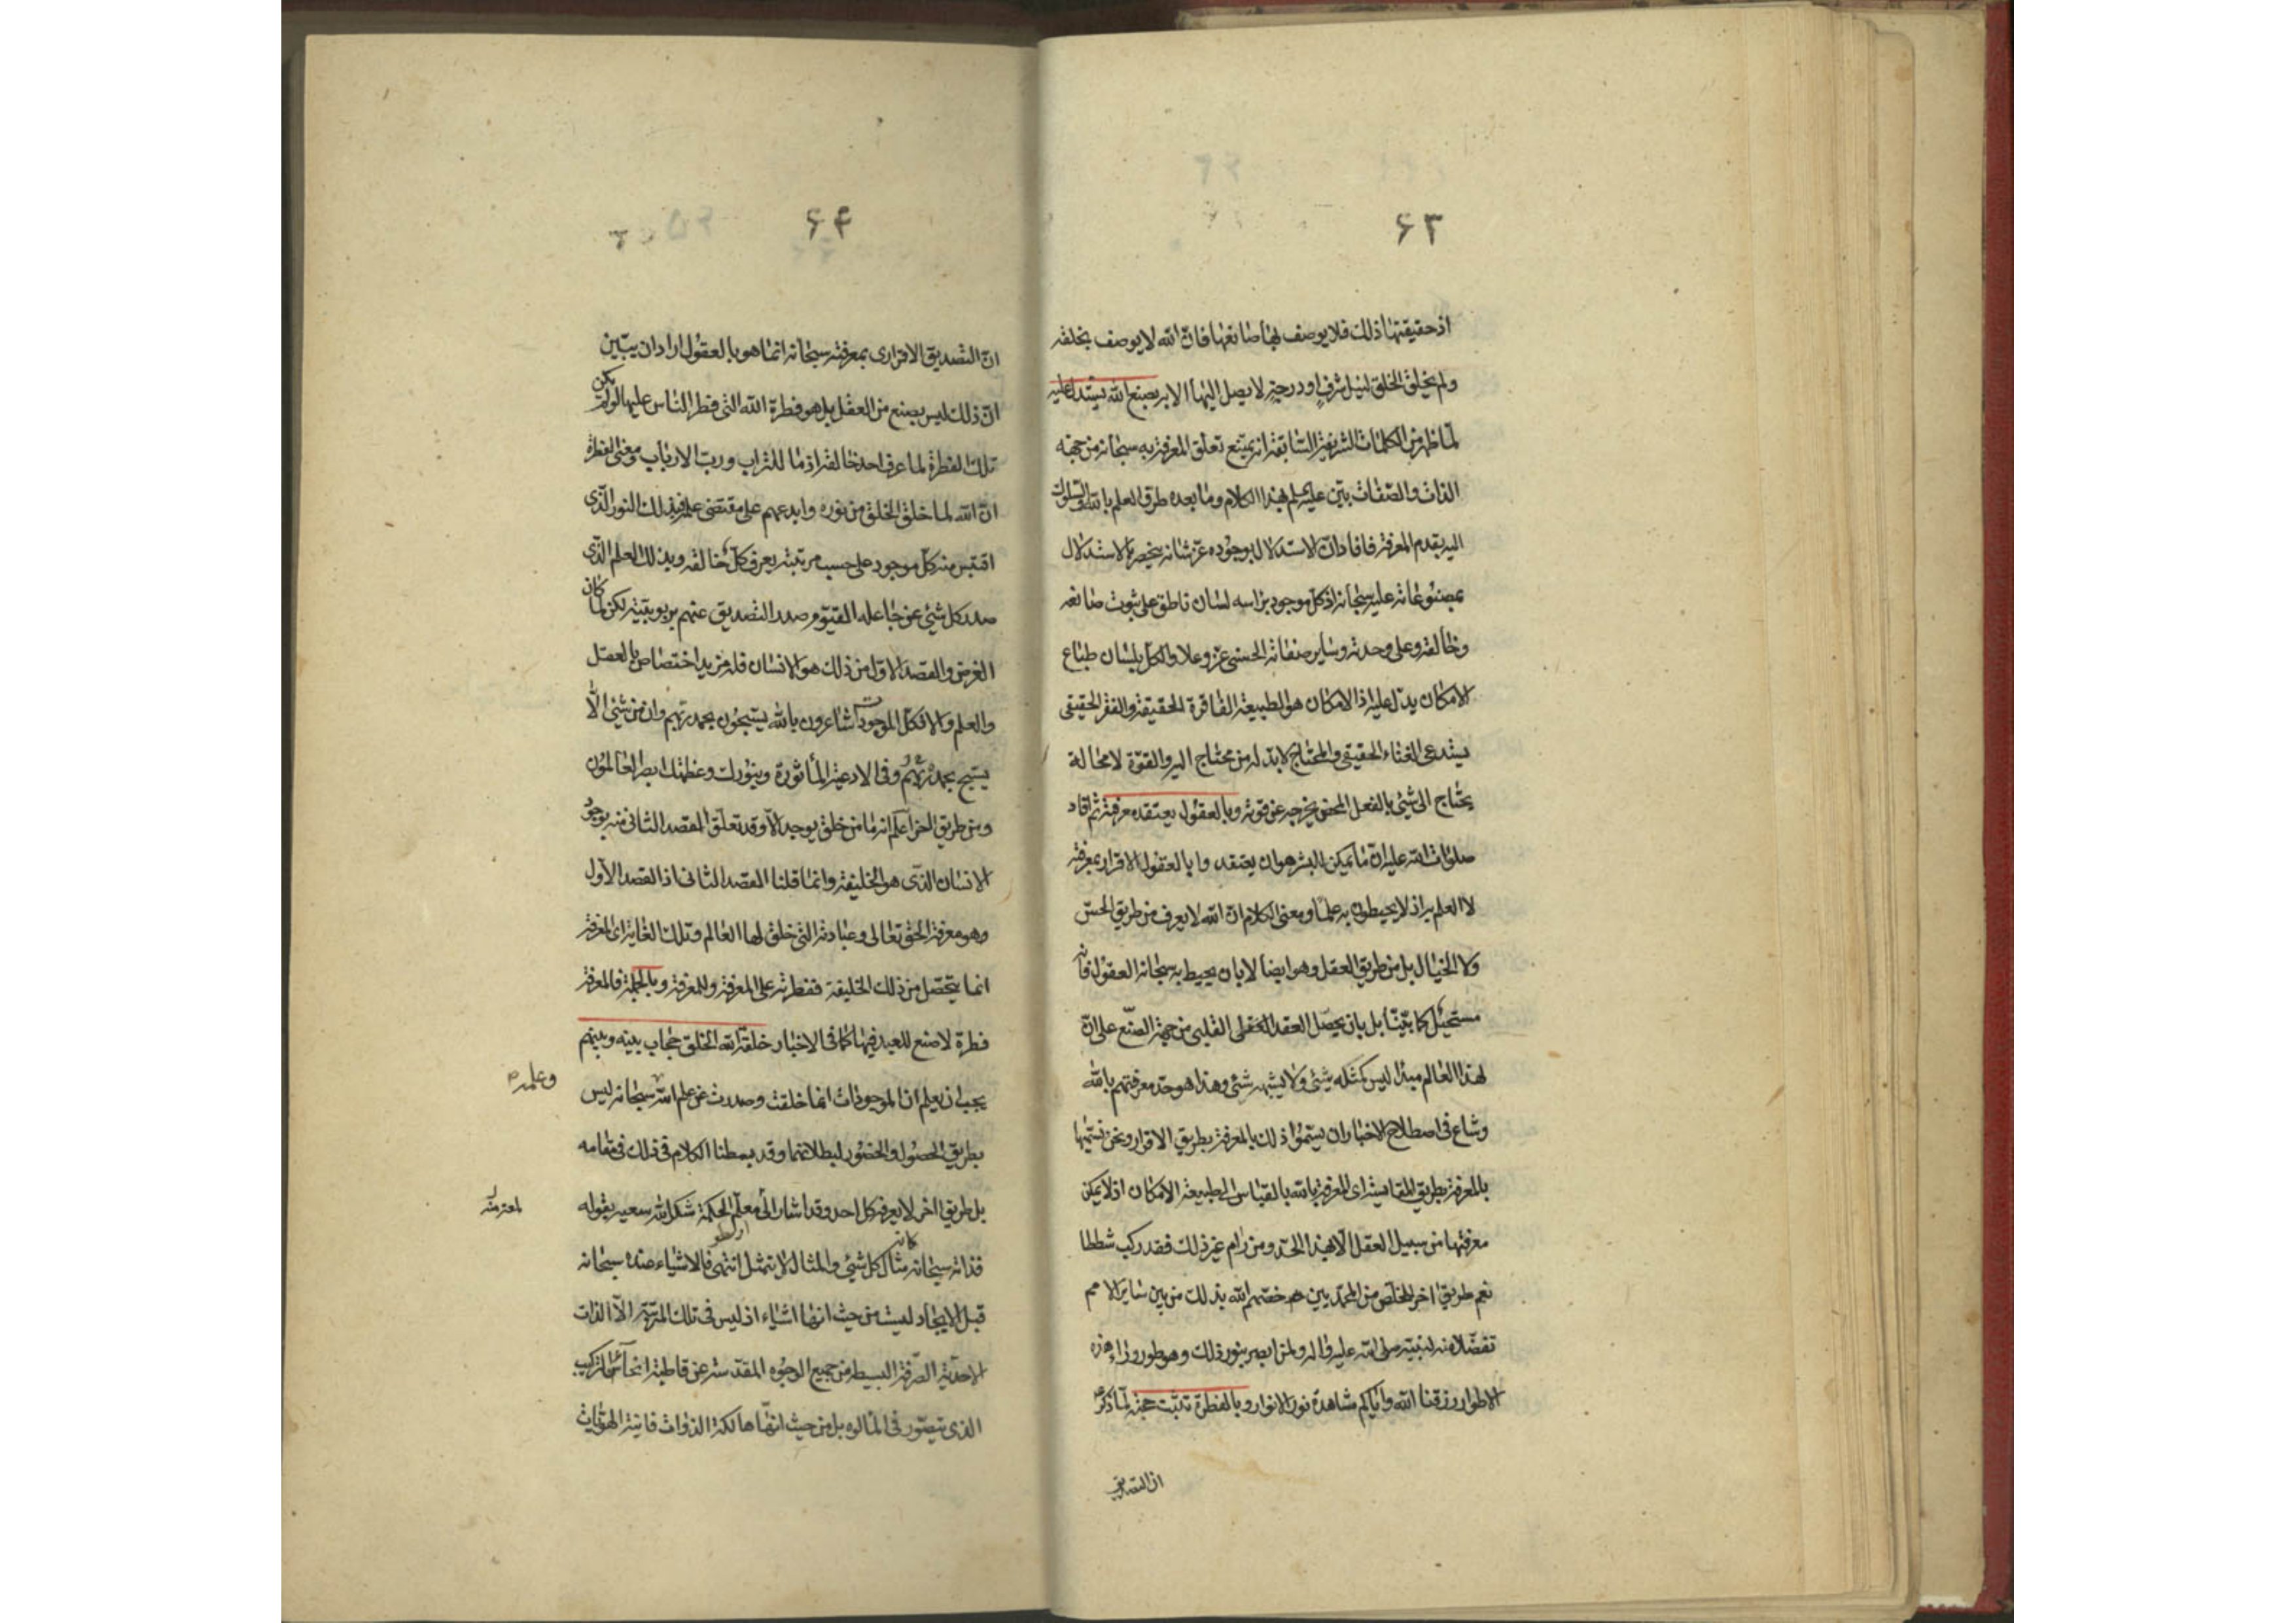 ٦٣
اذ حقيقتها ذلك فلا يوصف بها صانعها فانّ الله لا يوصف بخلقه
ولم يخلق الخلق لنيل شرف او درجة لا يصل اليها الا به بصنع الله يستدل عليه
لما ظهر من الكلمات الشريفة السابقة انه يمتنع تعلق المعرفة به سبحانه من جهة
الذات والصفات بيّن عليه السلم بهذا الكلام وما بعده طرق العلم بالله والسلوك
اليه بقدم المعرفة فافاد انّ الاستدلال بوجوده عزّ شانه ينحصر بالاستدلال
بمصنوعاته عليه سبحانه اذ كل موجود براسه لسان ناطق على ثبوت صانعه
وخالقه وعلى وحدته وساير صفاته الحسنى عز وعلا والكل بلسان طباع
الامكان يدل عليه اذ الامكان هو الطبيعة الفاقرة الحقيقة والفقر الحقيقى
يستدعى الغناء الحقيقى والمحتاج لا بدّ له من محتاج اليه والقوّة لا محالة
يحتاج الى شئ بالفعل المحض يخرجه عن قوته وبالعقول يعتقد معرفته ثم افاد
صلوات الله عليه انّ ما يمكن للبشر هو ان يعتقدوا بالعقول الاقرار بمعرفته
لا العلم به اذ لا يحيطون به علمًا ومعنى الكلام انّ الله لا يعرف من طريق الحسّ
ولا الخيال بل من طريق العقل وهو ايضا لا بان يحيط به سبحانه العقول فانه
مستحيل كما بيّنا بل بان يحصل العقد العقلى القلبى من جهة الصنع على انّ
لهذا العالم مبدا ليس كمثله شئ ولا يشبهه شئ وهذا هو حد معرفتهم بالله
وشاع فى اصطلاح الاخبار ان يسمّوا ذلك بالمعرفة بطريق الاقرار ونحن نسميها
بالمعرفة بطريق المقايسة اى المعرفة بالله بالقياس الى طبيعة الامكان اذ لا يمكن
معرفتها من سبيل العقل الا بهذا الحدّ ومن رام غير ذلك فقد ركب شططا
نعم طريق اخر للخلّص من المحمديين خصّهم الله بذلك من بين ساير الامم
تفضّلا منه لنبيّه صلى الله عليه واله ولمن ابصر بنور ذلك وهو طور وراء هذه
الاطوار رزقنا الله واياكم مشاهدة نور الانوار وبالفطرة تثبت حجته لمّا ذكر
ان التصديق
٦٤
انّ التصديق الاقرارى بمعرفته سبحانه انما هو بالعقول اراد ان يبيّن
انّ ذلك ليس بصنع من العقل بل هو فطرة الله التى فطر الناس عليها لو لم يكن
تلك الفطرة لما عرف احد خالقه اذ ما للتراب ورب الارباب ومعنى الفطرة
انّ الله لما خلق الخلق من نوره وابدعهم على مقتضى علمه فبذلك النور الذى
اقتبس منه كل موجود على حسب مرتبته يعرف كلّ خالقه وبذلك العلم الذى
صدر كل شئ عن جاعله القيّوم صدر التصديق عنهم بربوبيّته لكن لما كان
الغرض والقصد الاول من ذلك هو الانسان فله مزيد اختصاص بالعقل
والعلم والا فكل الموجودات شاعرون بالله يسبّحون بحمد ربهم وان من شئ الّا
يسبح بحمده ربهم وفى الادعية المأثورة وبنورك وعظمتك ابصر العالمون
ومن طريق اخر اعلم انه ما من خلق يوجد الا وقد تعلّق القصد الثانى منه بوجود
الانسان الذى هو الخليفة وانما قلنا القصد الثانى اذ القصد الاول
وهو معرفة الحق تعالى وعبادته التى خلق لها العالم وتلك الغاية اى المعرفة
انما يتحصّل من ذلك الخليفة ففطرته على المعرفة وللمعرفة وبالجملة فالمعرفة
فطرة لا صنع للعبد فيها كما فى الاخبار خلقة الله الخلق حجاب بينه وبينهم
يجب ان يعلم ان الموجودات انما خلقت وصدرت عن علم الله سبحانه ليس
وعلمه
بطريق الحصول والحضور لبطلانهما وقد بسطنا الكلام فى ذلك فى مقامه
بل طريق اخر لا يعرفه كل احد وقد اشار الى معلّم الحكمة شكر الله سعيه بقوله
ارسطو
فذاته سبحانه كانه مثال كل شئ والمثال لا يتمثل انتهى فالاشياء عنده سبحانه
قبل الايجاد ليست من حيث انها اشياء اذ ليس فى تلك المرتبة الا الذات
الاحدية الصرفة البسيطة من جميع الوجوه المقدسة عن قاطبة انحاء التركيب
الذى يتصوّر فى المألوه بل من حيث انها هالكة الذوات فانية الهويات